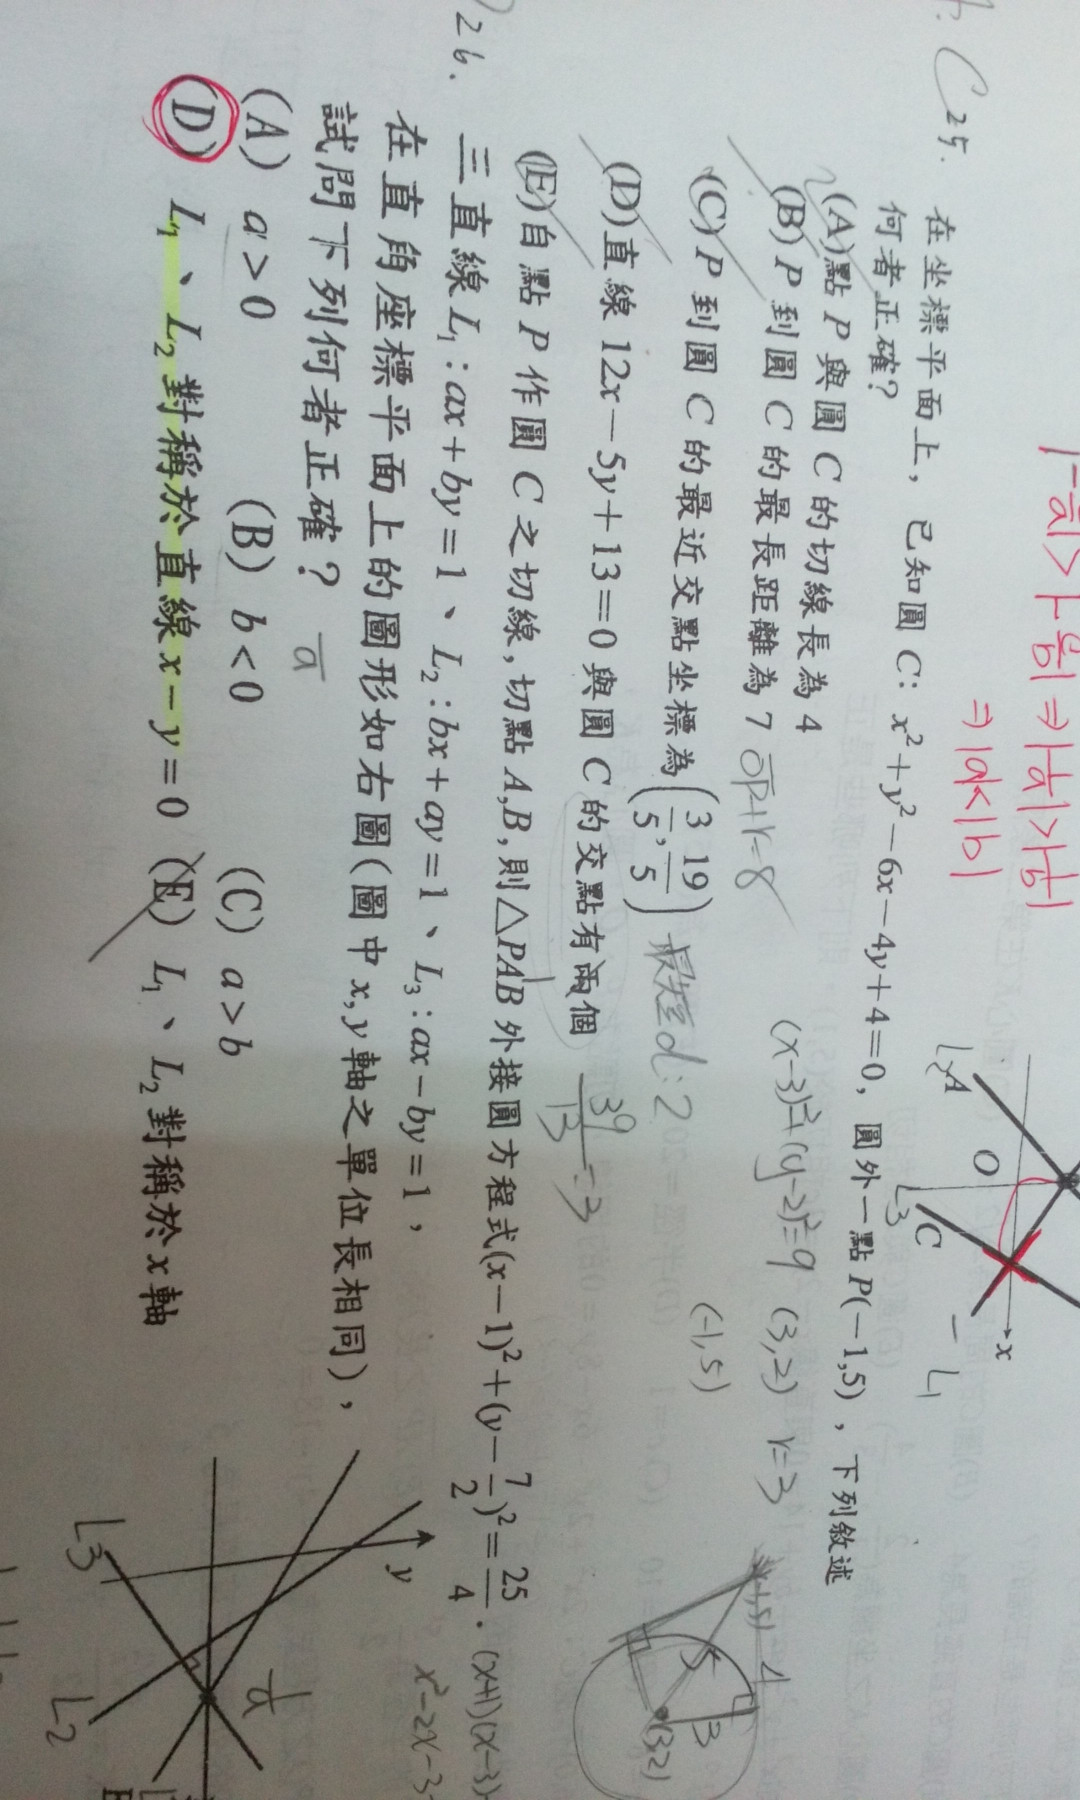 |-a/b| > |-b/a| ⇒ |1/a| > |1/b|
⇒ |a| < |b|
A
O
C
x
L₂
L₃
L₁
C 25. 在坐標平面上，已知圓 C：x²+y²−6x−4y+4=0，圓外一點 P(−1,5)，下列敘述
何者正確？
(A)點 P 與圓 C 的切線長為 4
(B) P 到圓 C 的最長距離為 7
OP+r=8
(x-3)²+(y-2)²=9 (3,2) r=3
(C) P 到圓 C 的最近交點坐標為(3/5, 19/5)
最短d:2
(-1,5)
(D)直線 12x−5y+13=0 與圓 C 的交點有兩個
39/13=3
(E)自點 P 作圓 C 之切線,切點 A,B,則△PAB 外接圓方程式(x−1)²+(y−7/2)²=25/4.
(-1,5)
4
5
3
(3,2)
(x+1)(x-3)
x²-2x-3
26. 三直線 L₁：ax+by=1、L₂：bx+ay=1、L₃：ax−by=1，
在直角座標平面上的圖形如右圖(圖中 x,y 軸之單位長相同)，
試問下列何者正確？
(A) a>0 (B) b<0 (C) a>b
(D) L₁、L₂ 對稱於直線 x−y=0 (E) L₁、L₂ 對稱於 x 軸
y
1/a
L₃
L₂